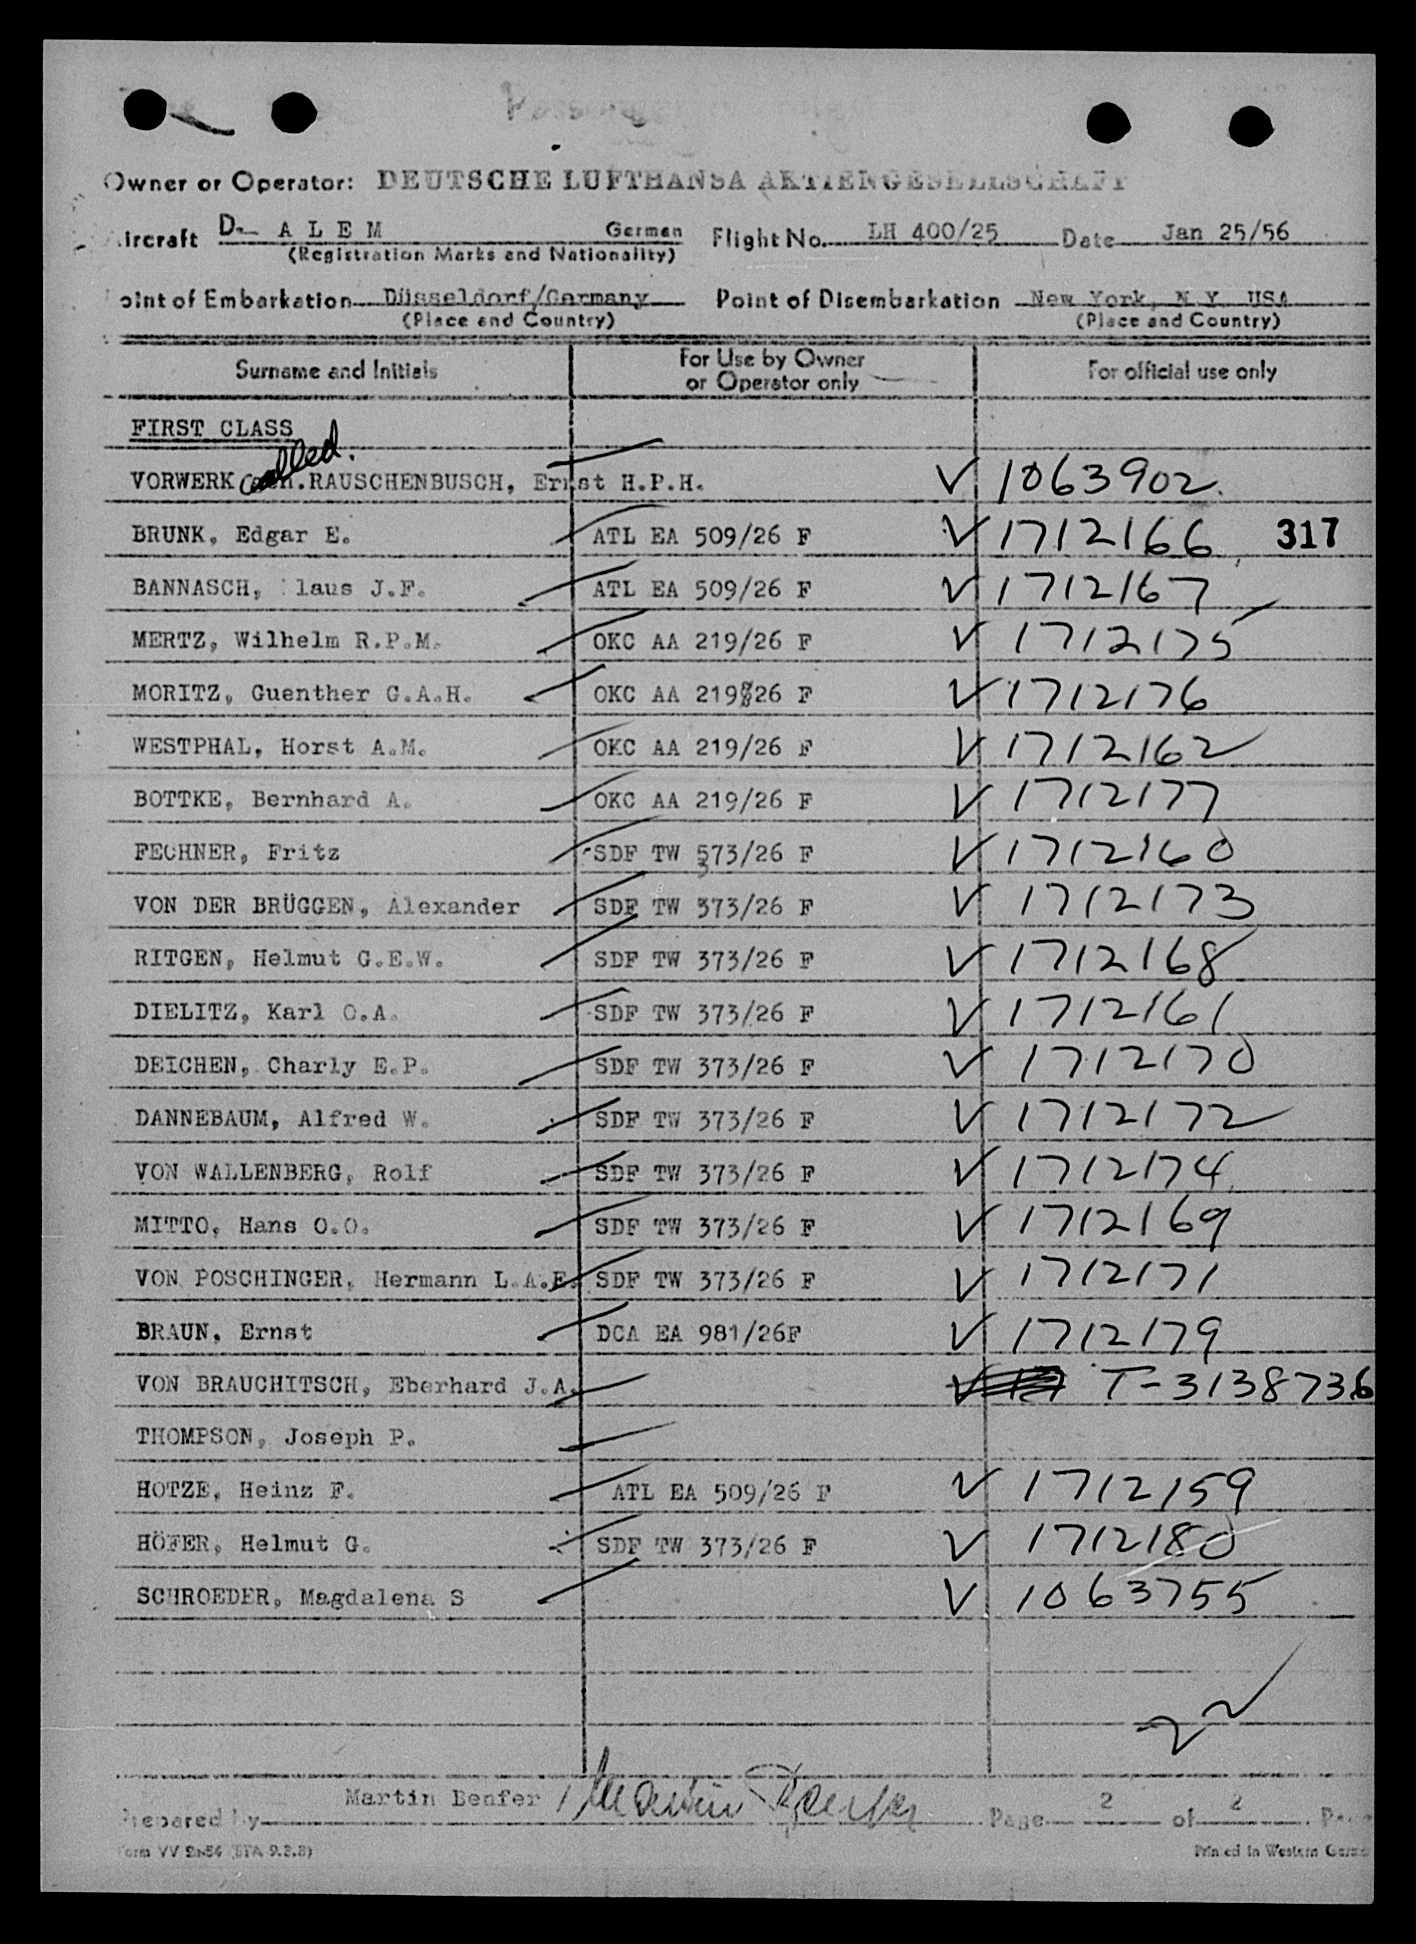 Owner or Operator: DEUTSCHE LUFTHANSA AKTIENGESELLSCHAFT
Aircraft D- A L E M German Flight No. LH 400/25 Date Jan 25/56
(Registration Marks and Nationality)
Point of Embarkation Düsseldorf/Germany Point of Disembarkation New York, N Y USA
(Place and Country) (Place and Country)
Surname and Initials For Use by Owner or Operator only For official use only
FIRST CLASS
VORWERK called .RAUSCHENBUSCH, Ernst H.P.H. 1063902.
BRUNK, Edgar E. ATL EA 509/26 F 1712166 317
BANNASCH, laus J.F. ATL EA 509/26 F 1712167
MERTZ, Wilhelm R.P.M. OKC AA 219/26 F 1712175
MORITZ, Guenther G.A.H. OKC AA 219/26 F 1712176
WESTPHAL, Horst A.M. OKC AA 219/26 F 1712162
BOTTKE, Bernhard A. OKC AA 219/26 F 1712177
FECHNER, Fritz SDF TW 373/26 F 1712160
VON DER BRÜGGEN, Alexander SDF TW 373/26 F 1712173
RITGEN, Helmut G.E.W. SDF TW 373/26 F 1712168
DIELITZ, Karl O.A. SDF TW 373/26 F 1712161
DEICHEN, Charly E.P. SDF TW 373/26 F 1712170
DANNEBAUM, Alfred W. SDF TW 373/26 F 1712172
VON WALLENBERG, Rolf SDF TW 373/26 F 1712174
MITTO, Hans O.O. SDF TW 373/26 F 1712169
VON POSCHINGER, Hermann L.A.E. SDF TW 373/26 F 1712171
BRAUN, Ernst DCA EA 981/26F 1712179
VON BRAUCHITSCH, Eberhard J.A. T-3138736
THOMPSON, Joseph P.
HOTZE, Heinz F. ATL EA 509/26 F 1712159
HÖFER, Helmut G. SDF TW 373/26 F 1712180
SCHROEDER, Magdalena S 1063755
22
Martin Benfer / Martin Benfer
Prepared by Page 2 of 2
Form VV 2a-54 (BTA 9.3.3) Printed in Western